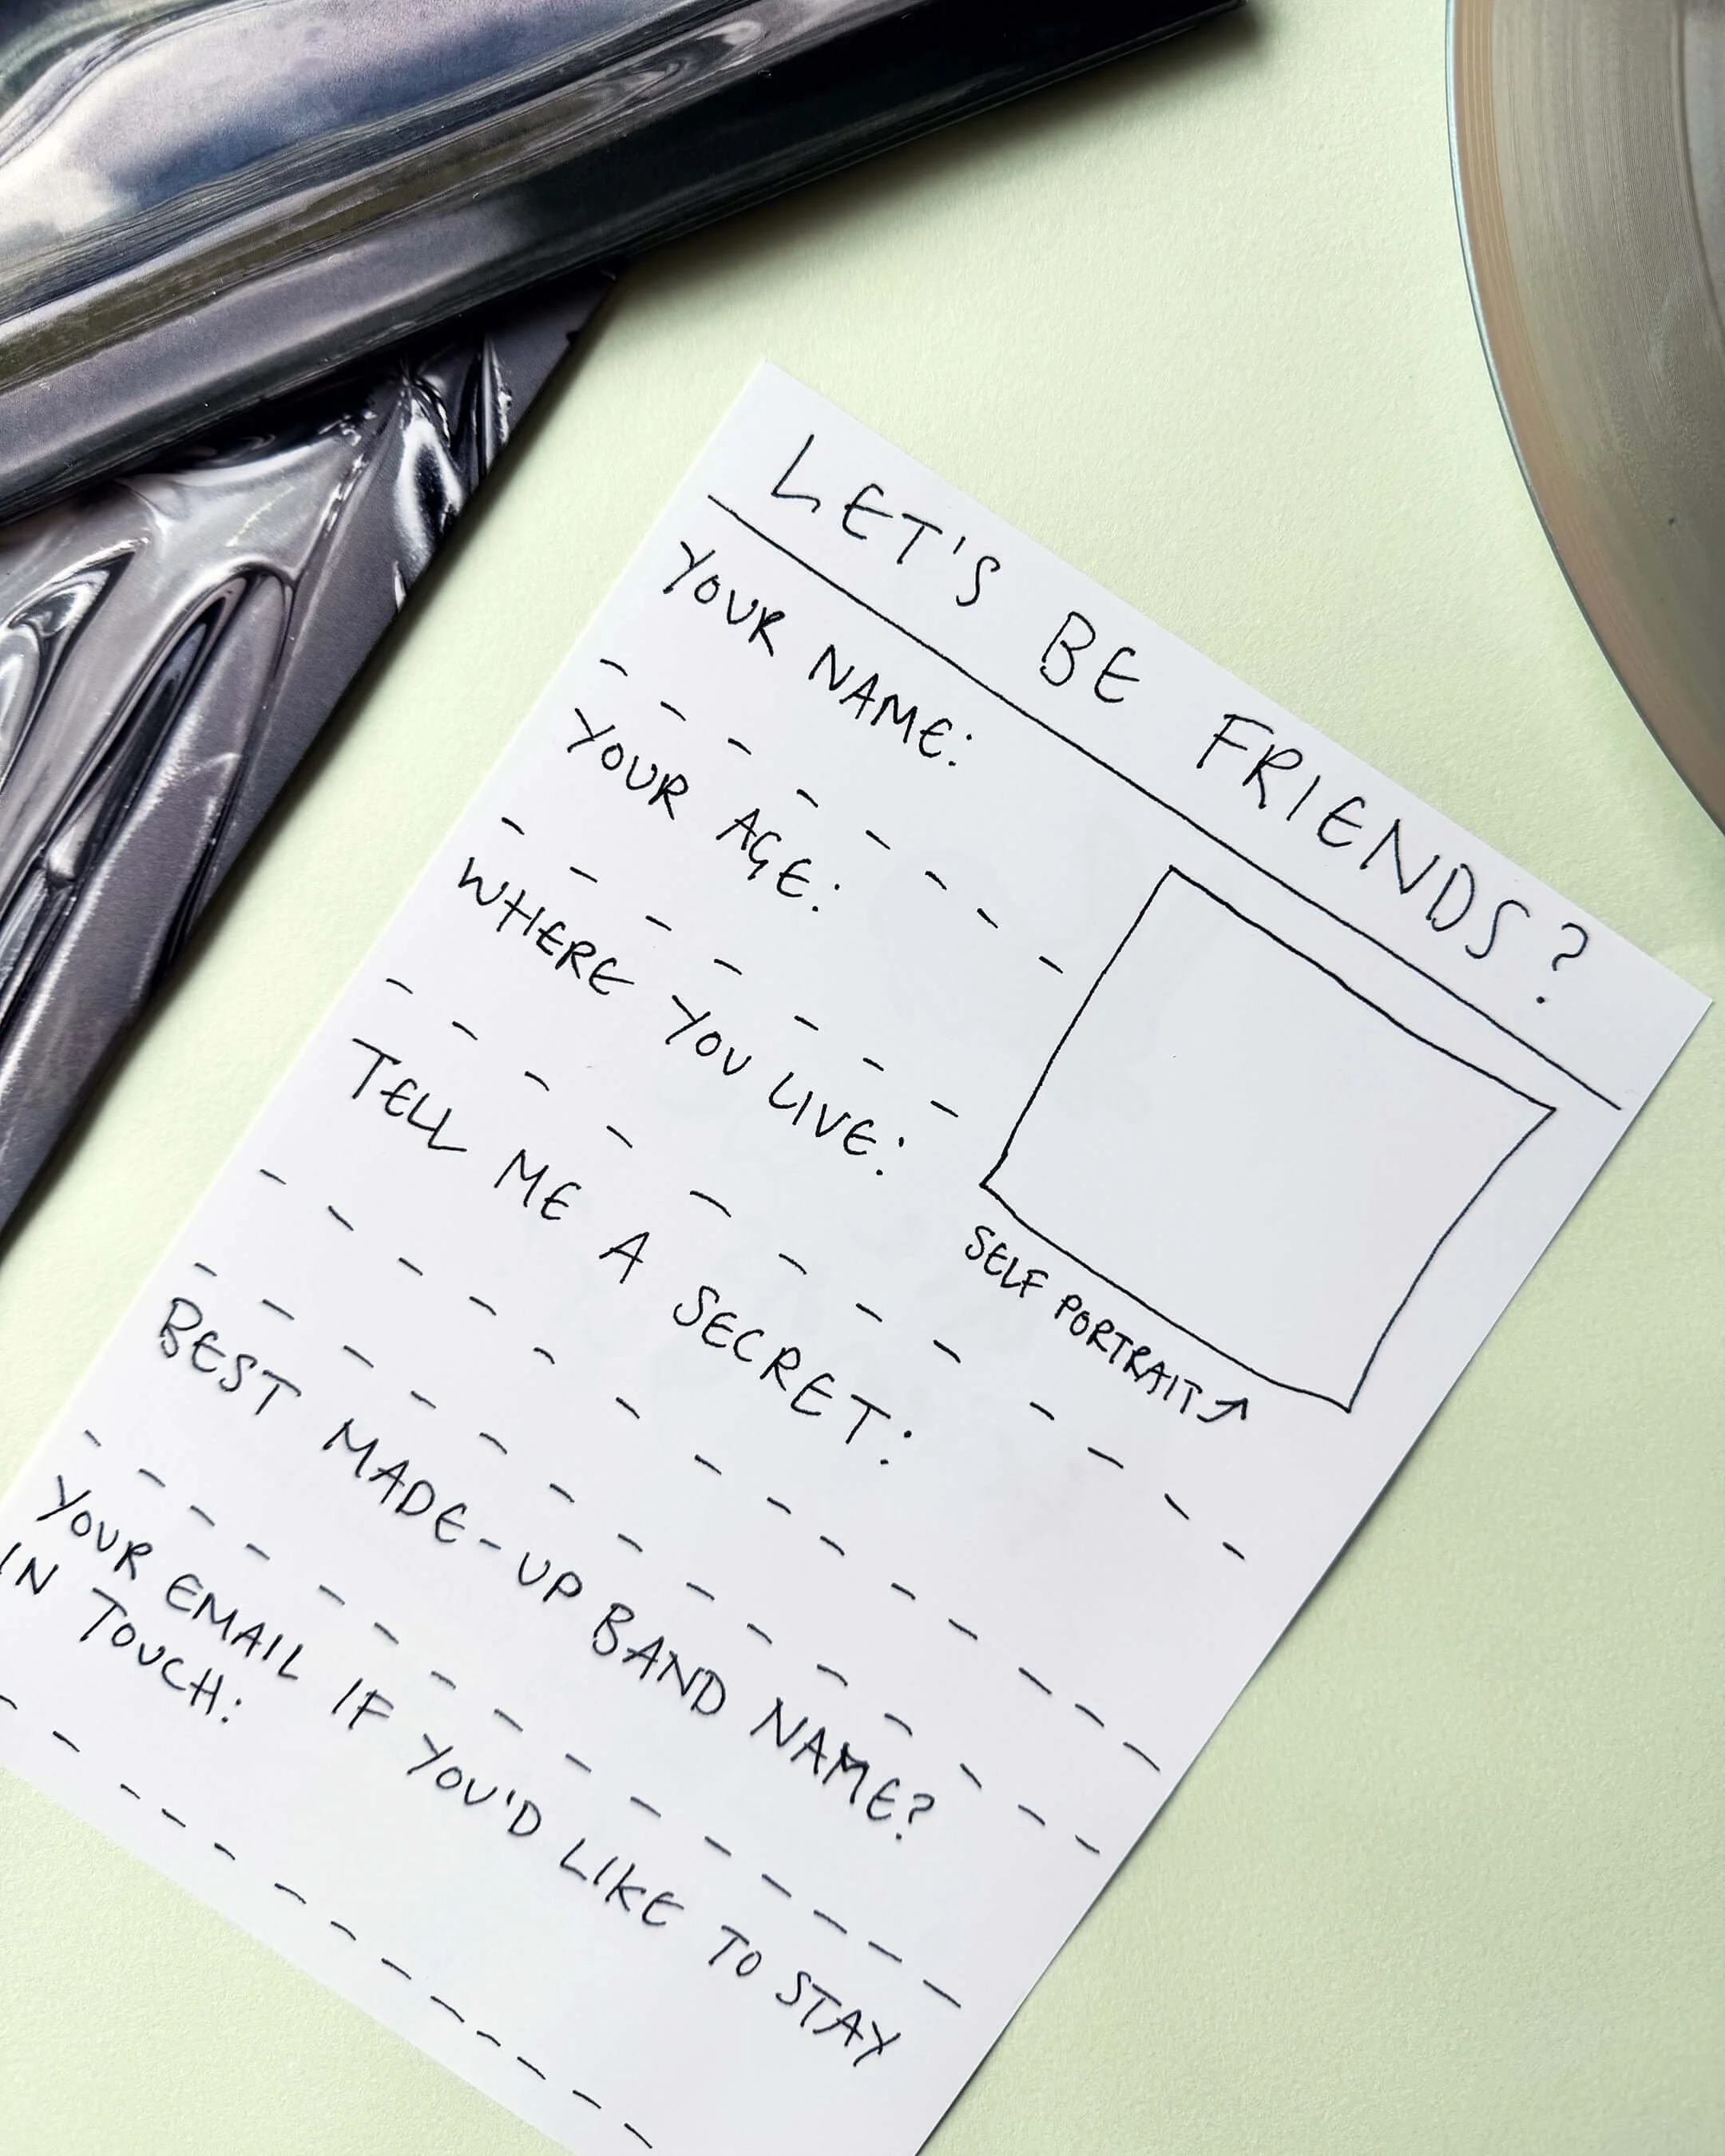 LET'S BE FRIENDS?
YOUR NAME:
YOUR AGE:
WHERE YOU LIVE:
SELF PORTRAIT
TELL ME A SECRET:
BEST MADE-UP BAND NAME?
YOUR EMAIL IF YOU'D LIKE TO STAY
IN TOUCH: